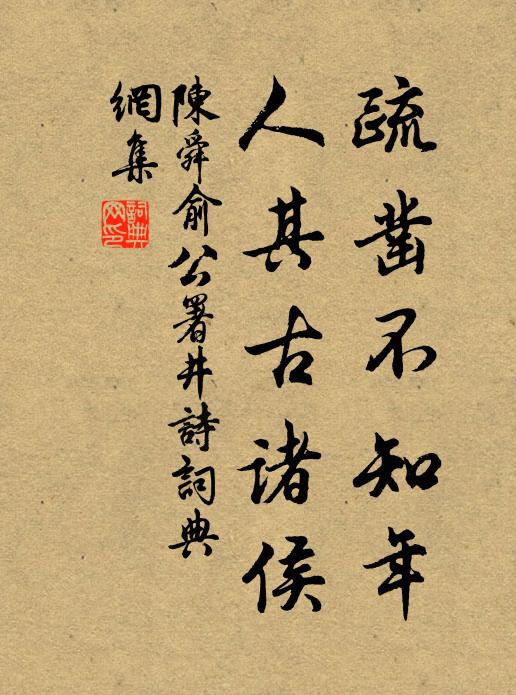 疏鑿不知年
人其古諸侯
陳舜俞公署井詩詞典
網集
詞典
网印